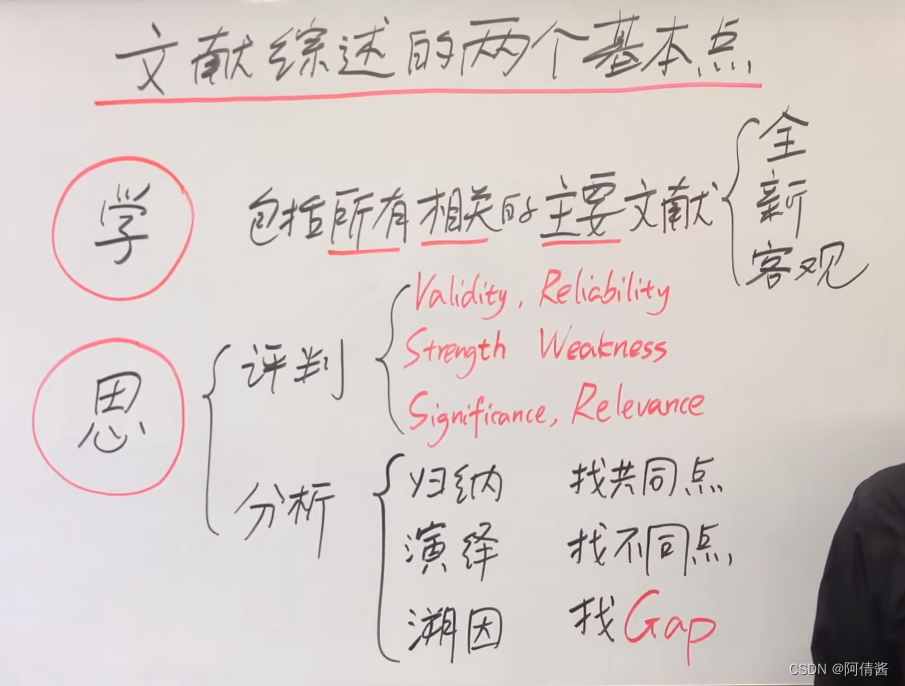 文献综述的两个基本点
学 包括所有相关的主要文献
全
新
客观
思
评判
Validity, Reliability
Strength Weakness
Significance, Relevance
分析
归纳 找共同点
演绎 找不同点
溯因 找Gap
CSDN @阿倩酱